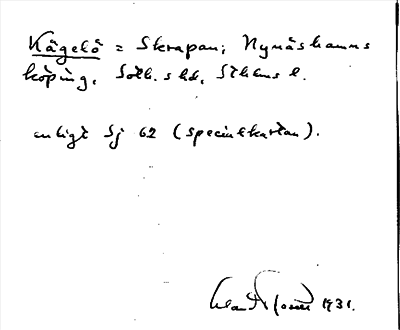 Kågelö = Skrapan; Nynäshamns
köping, Soth. shd, Sthlms l.
enligt Sj 62 (specialkartan).
1931.